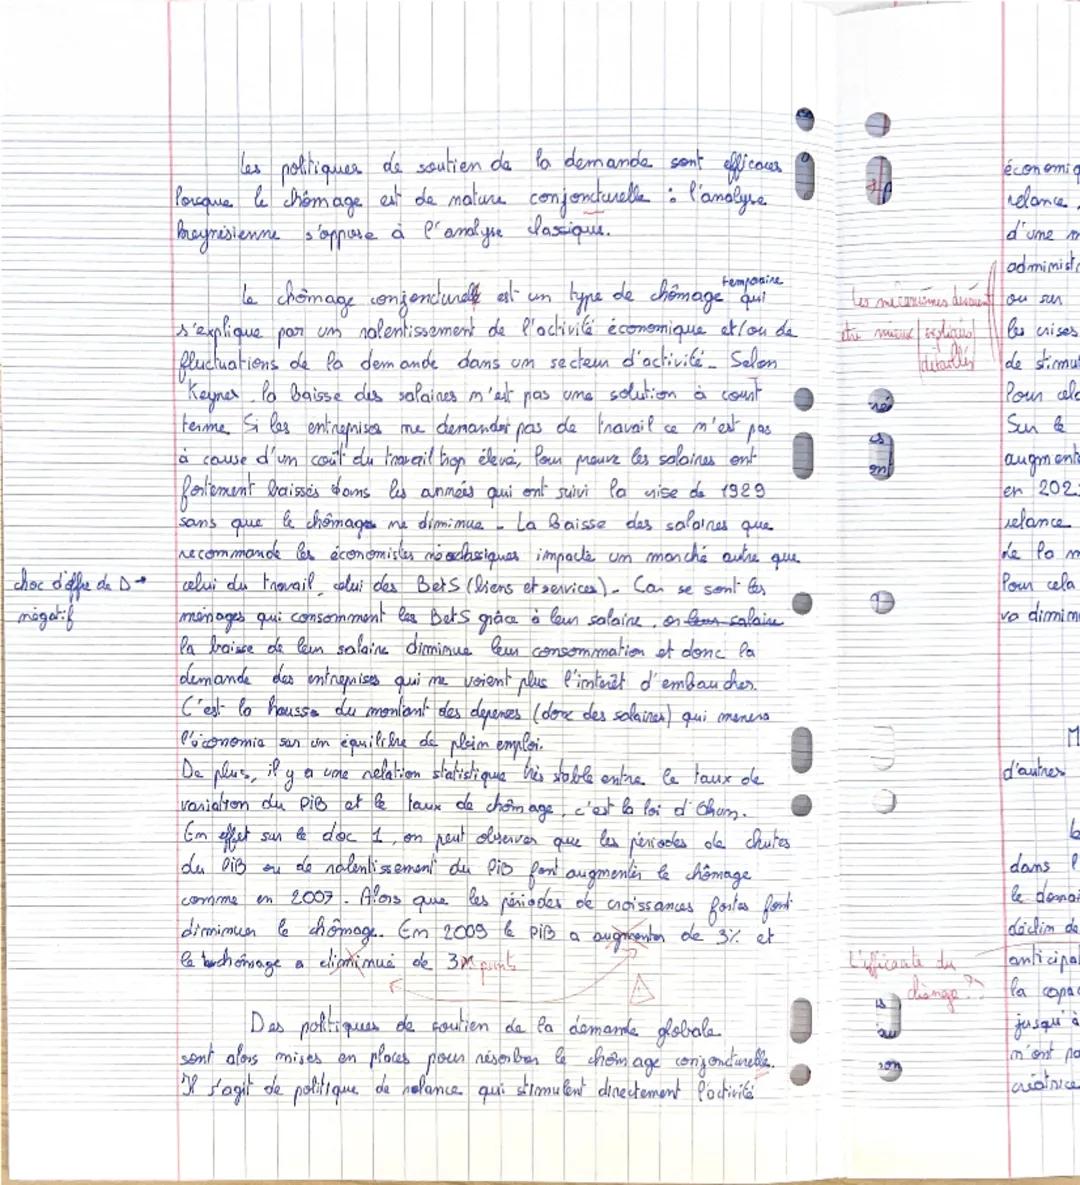 Les politiques de soutien de la demande sont efficaces
lorsque le chômage est de nature conjoncturelle : l'analyse
keynésienne s'oppose à l'analyse classique.
temporaire
Le chômage conjoncturel est un type de chômage qui
s'explique par un ralentissement de l'activité économique et/ou de
fluctuations de la demande dans un secteur d'activité. Selon
Keynes, la baisse des salaires n'est pas une solution à court
terme. Si les entreprises ne demandent pas de travail ce n'est pas
à cause d'un coût du travail trop élevé, Pour preuve les salaires ont
fortement baissés dans les années qui ont suivi la crise de 1929
sans que le chômage ne diminue. La baisse des salaires que
recommande les économistes néoclassiques impacte un marché autre que
choc d'offre de D →
négatif
celui du travail, celui des BetS (biens et services). Car se sont les
ménages qui consomment les BetS grâce à leur salaire, or leur salaire
la baisse de leur salaire diminue leur consommation et donc la
demande des entreprises qui ne voient plus l'interêt d'embaucher.
C'est la hausse du montant des depenses (donc des salaires) qui menera
l'économie sur un équilibre de plein emploi.
De plus, il y a une relation statistique très stable entre le taux de
variation du PIB et le taux de chômage, c'est la loi d'Okun.
En effet sur le doc 1, on peut observer que les périodes de chutes
du PIB ou de ralentissement du PIB font augmenter le chômage
comme en 2007. Alors que les périodes de croissances fortes font
diminuer le chômage. En 2009 le PIB a augmenter de 3% et
le chômage a diminué de 3 points
Des politiques de soutien de la demande globale
sont alors mises en places pour résorber le chômage conjoncturelle.
Il s'agit de politique de relance qui stimulent directement l'activité
Les mécanismes devraient
être mieux expliqués/
détaillés
L'efficacité du
né
es
ent
is
au
ron
économiq
relance.
d'une m
administr
ou sur
les crises
de stimul
Pour cela
Sur le
augmente
en 202
relance
de la m
Pour cela
va diminu
M
d'autres
L
dans l
le domai
déclin de
anticipat
la capac
jusqu'à
n'ont pa
créatrice